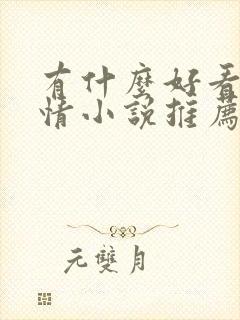 有什麼好看
情小說推薦
元雙月